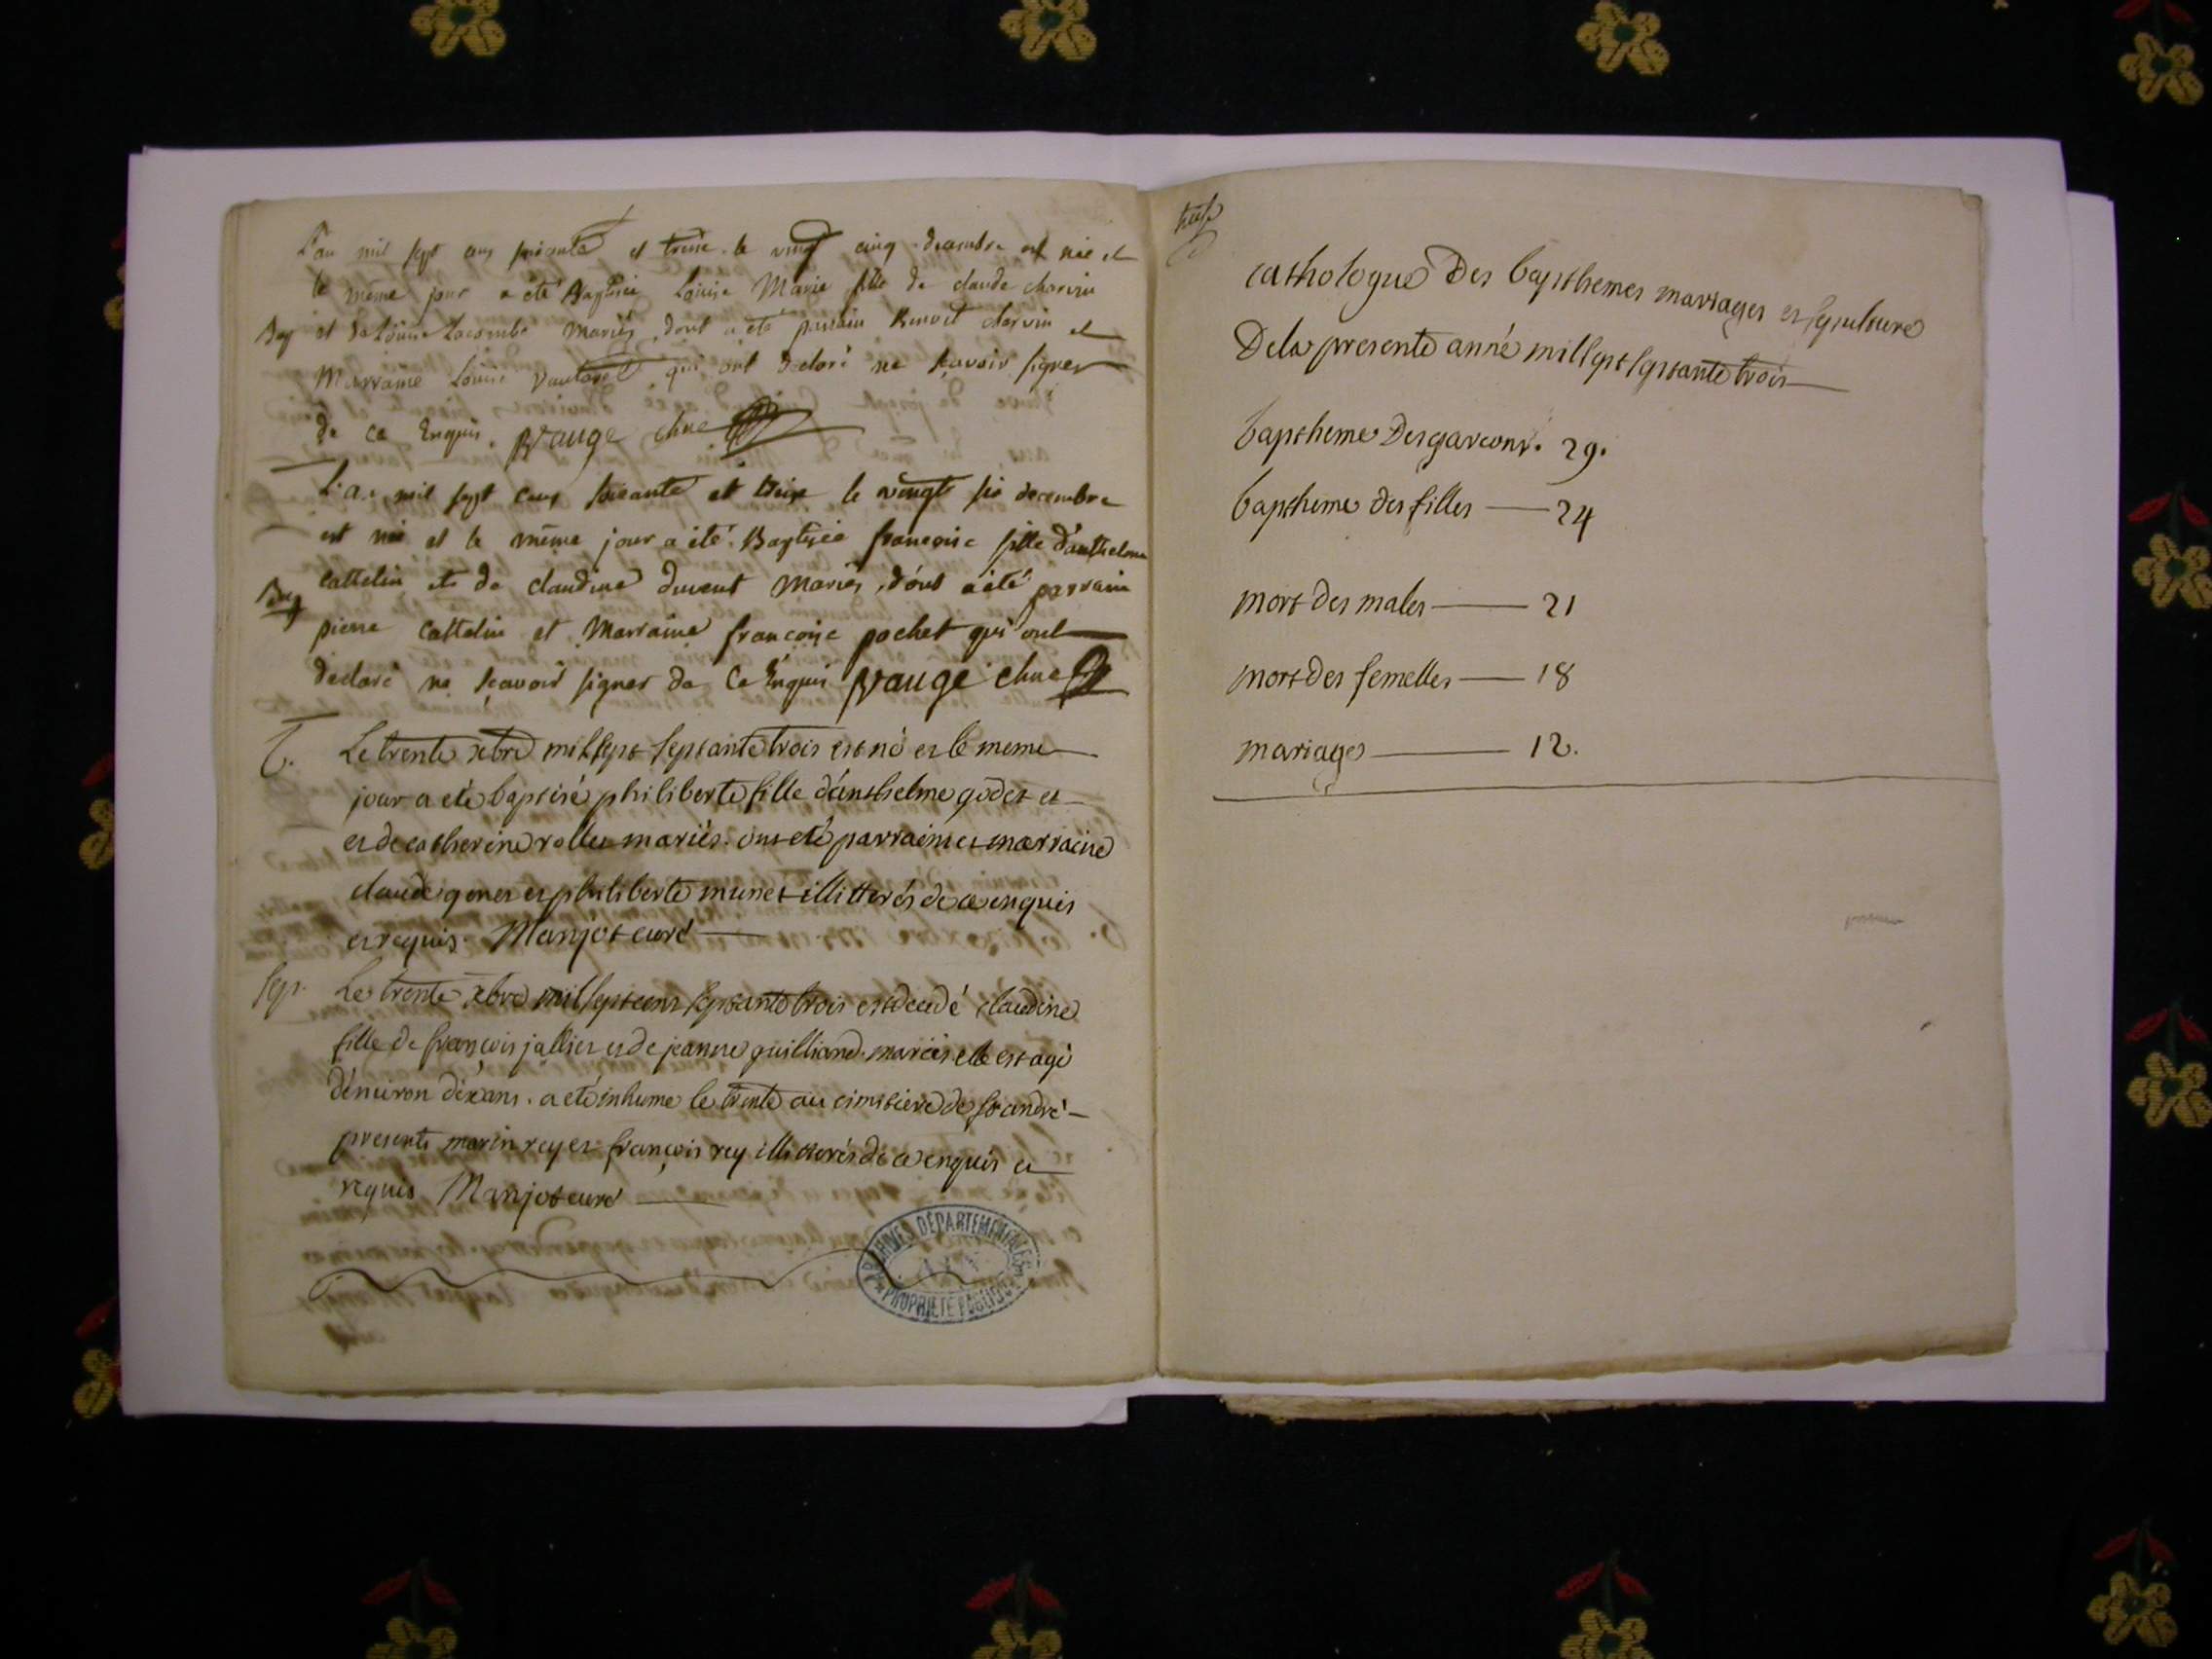 L'an mil sept cens soixante et treize le vingt cinq decembre est née et
le même jour a été Baptisée Louise Marie fille de claude charvin
Bap et de Louise Lacombe Mariés, dont a été parrain Benoit charvin et
Marraine Louise qui ont declaré ne sçavoir signer
de ce Enquis. Vauge
L'an mil sept cens soixante et treize le vingt six decembre
est née et le même jour a été Baptisée francoise fille d'anthelme
cattelin et de claudine duvent Mariés, dont a été parrain
Bap
pierre cattelin et Marraine francoise pochet qui ont
declaré ne sçavoir signer de Ce Enquis Vauge
b. Le trente xbre mil sept septante trois est né et le meme
jour a eté baptisé philiberte fille d'anthelme godet et
et de catherine rollet mariés. ont eté parrain et marraine
claude et philiberte munet illitterés de ce enquis
et requis. Manjot curé
sep. Le trente xbre mil sept cent septante trois est decedé claudine
fille de francois jallier et de jeanne guilliand mariés elle est agé
d'environ dix ans. a eté inhume le trente au cimetiere de st andré
presents marin rey et francois rey illitterés de ce enquis et
requis Manjot curé
ARCHIVES DÉPARTEMENTALES
AIN
PROPRIÉTÉ PUBLIQUE
cathologue Des bapthemes marriages et sepulture
De la presente anné mil sept septante trois
baptheme Des garcons. 29.
baptheme des filles 24
mort des males 21
mort des femelles 18
mariages 12.